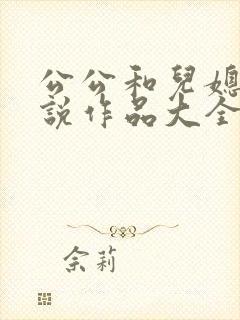 公公和兒媳
說作品大全
佘莉